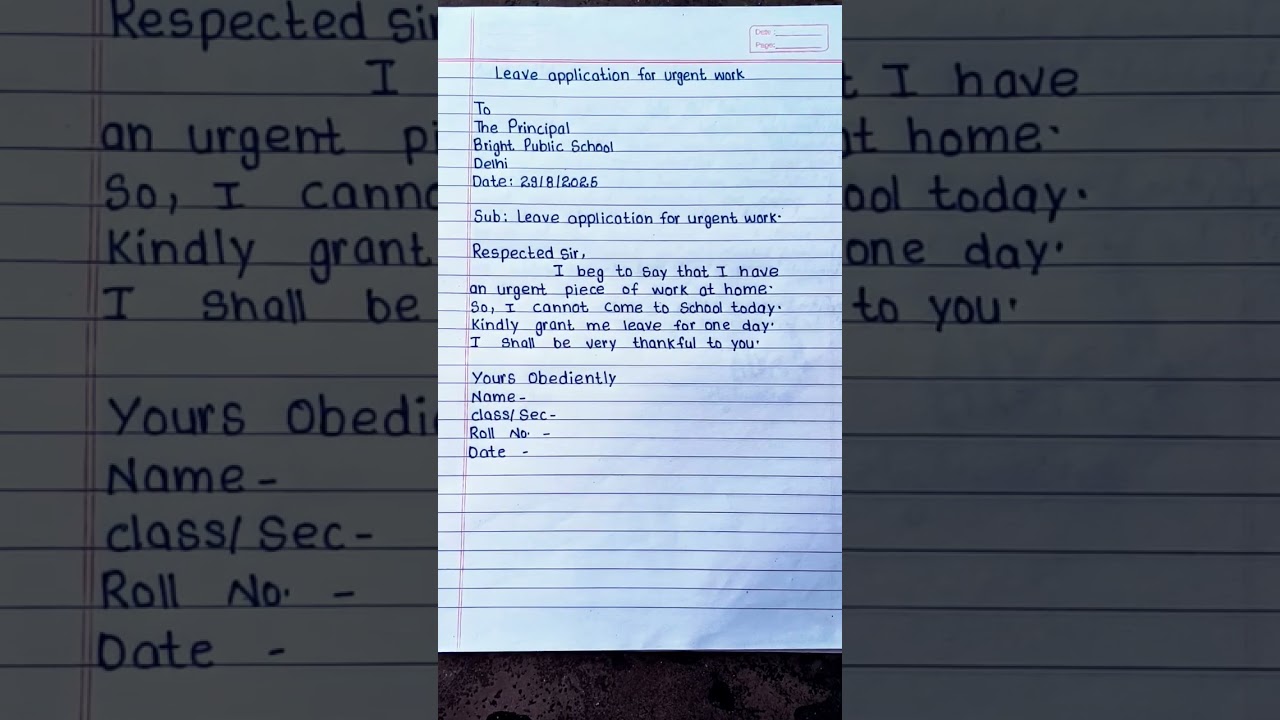 Date:
Page:
Leave application for urgent work
To
The Principal
Bright Public School
Delhi
Date: 29/8/2025
Sub: Leave application for urgent work.
Respected Sir,
I beg to say that I have
an urgent piece of work at home.
So, I cannot come to School today.
Kindly grant me leave for one day.
I shall be very thankful to you.
Yours Obediently
Name -
class/Sec -
Roll No. -
Date -